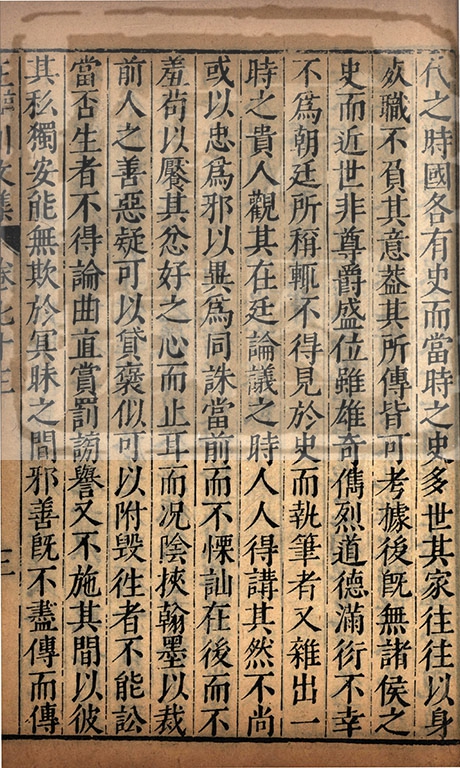 代之時國各有史而當時之史多世其家往往以身
死職不負其意葢其所傳皆可考據後旣無諸侯之
史而近世非尊爵盛位雖雄奇儁烈道德滿衍不幸
不爲朝廷所稱輒不得見於史而執筆者又雜出一
時之貴人觀其在廷論議之時人人得講其然不尚
或以忠爲邪以異爲同誅當前而不慄訕在後而不
羞苟以饜其忿好之心而止耳而况陰挾翰墨以裁
前人之善惡疑可以貸褒似可以附毀徃者不能訟
當否生者不得論曲直賞罰謗譽又不施其間以彼
其私獨安能無欺於冥昧之間邪善旣不盡傳而傳
王臨川文集 卷七十三 三